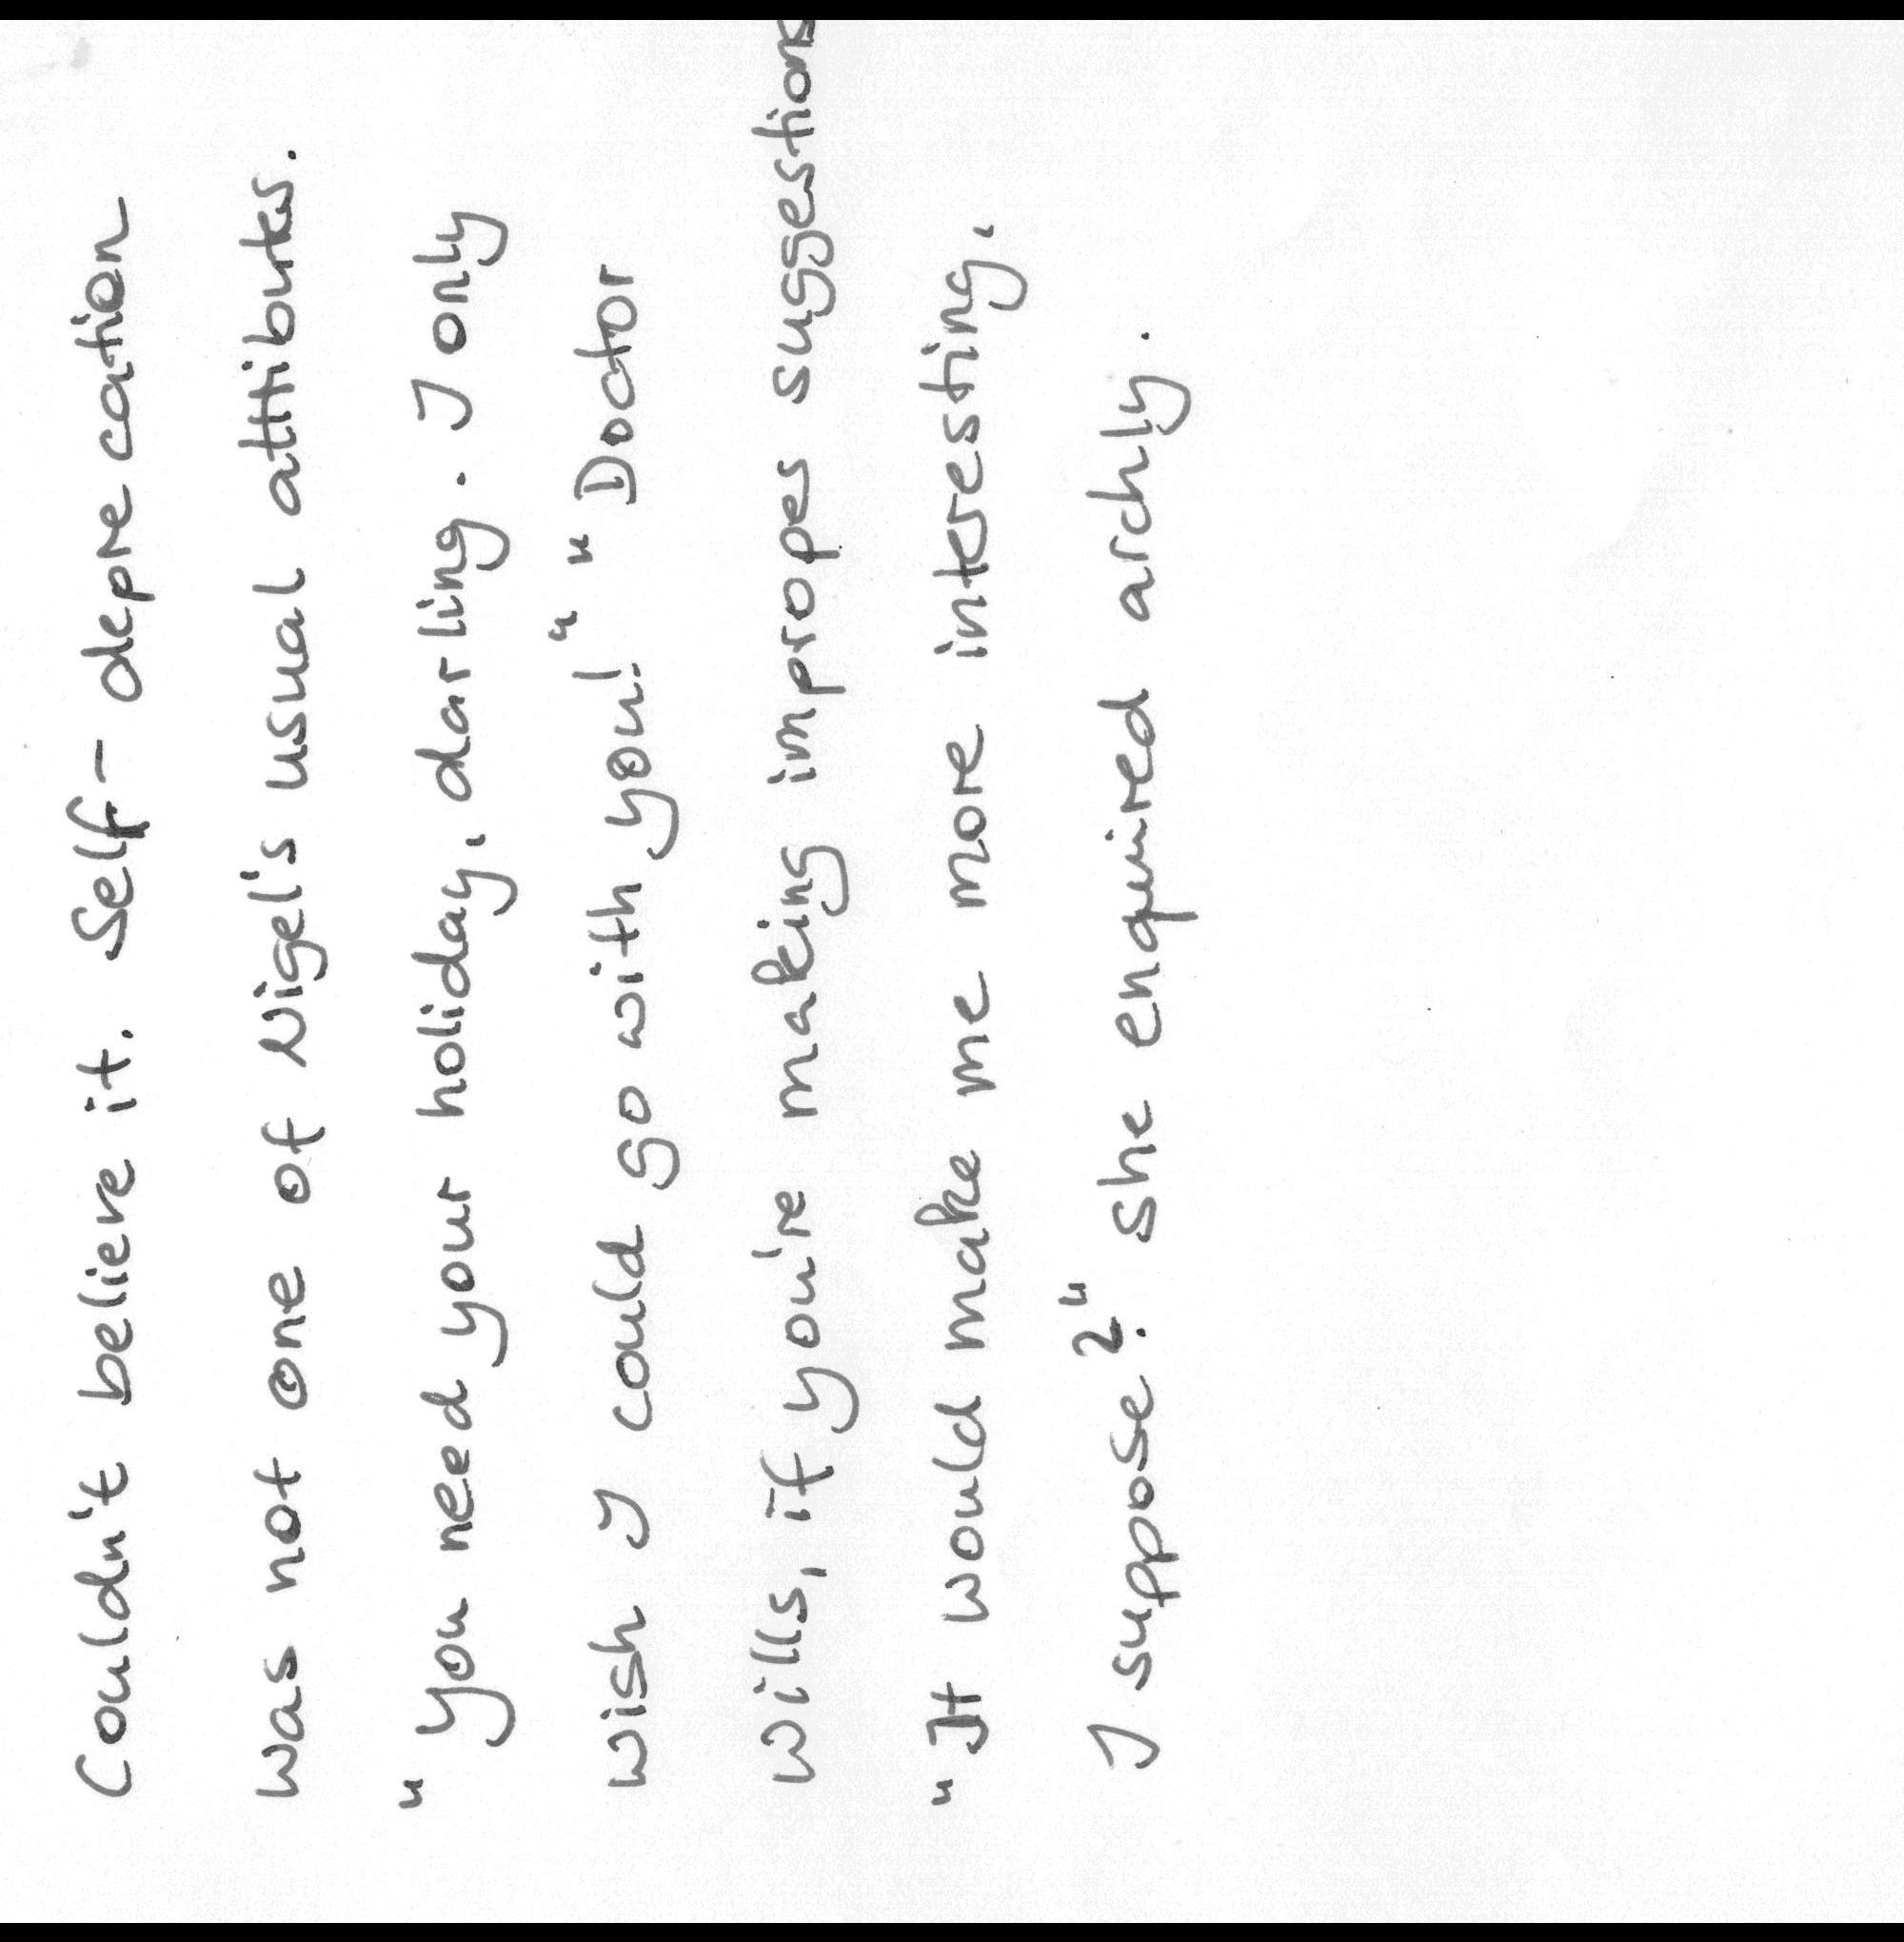 Couldn't believe it. Self-deprecation
was not one of Nigel's usual attibutes.
"You need your holiday, darling. I only
wish I could go with you!" "Doctor
Wills, if you're making impropes suggestions
"It would make me more interesting,
I suppose?" she enquired archly.